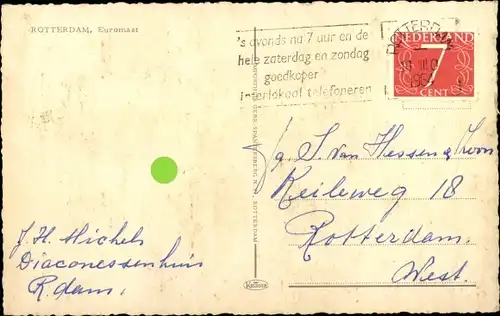 ROTTERDAM, Euromast
's avonds na 7 uur en de
hele zaterdag en zondag
goedkoper
interlokaal telefoneren
ROTTERDAM
NEDERLAND
7
CENT
S. van Hessen & Zoon
Keileweg 18
Rotterdam.
West.
J. H. Michels
Diaconessenhuis
R.dam.